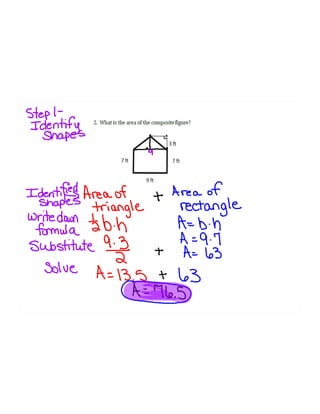 Step 1-
Identify
Shapes
2. What is the area of the composite figure?
3 ft
9
7 ft
7 ft
9 ft
Identified
Shapes
Area of
triangle
+
Area of
rectangle
Write down
formula
1/2 b·h
A = b·h
Substitute
9·3
2
+
A = 9·7
A = 63
Solve
A = 13.5 + 63
A = 76.5